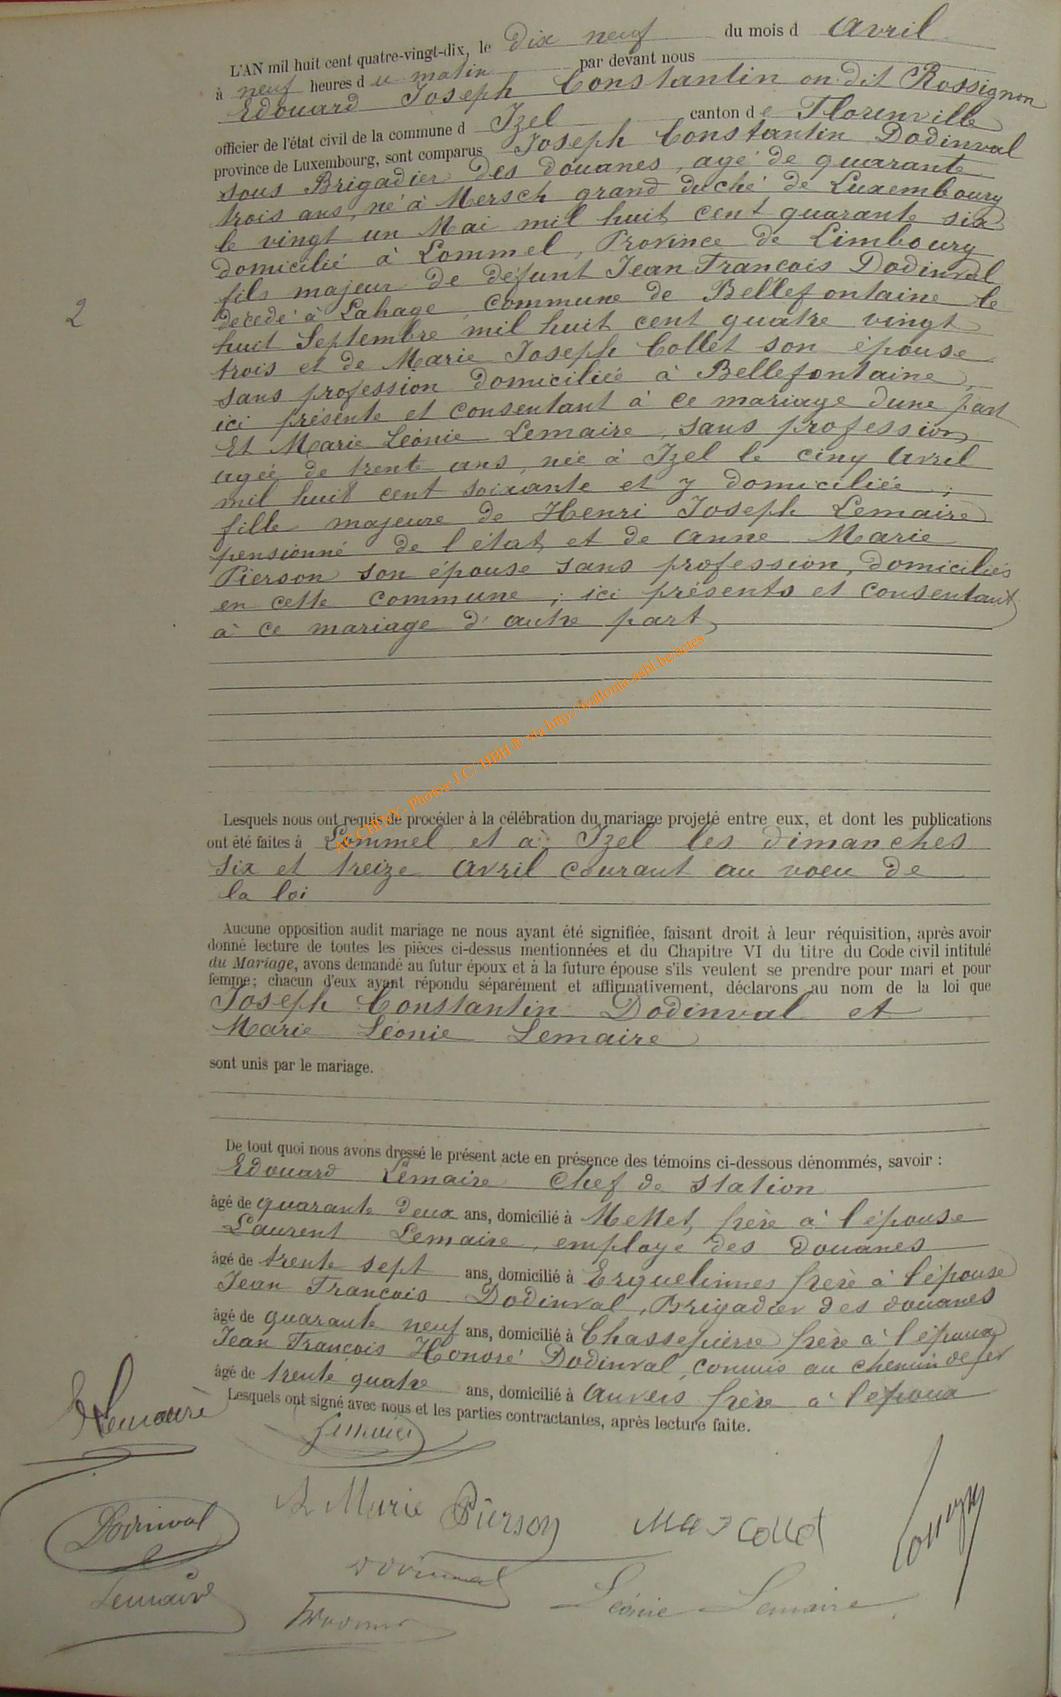 L'AN mil huit cent quatre-vingt-dix, le dix neuf du mois d Avril
à neuf heures d u matin par devant nous
Edouard Joseph Constantin on dit Rossignon
officier de l'état civil de la commune d Izel canton d e Florenville
province de Luxembourg, sont comparus Joseph Constantin Dodinval
sous Brigadier des douanes, agé de quarante
trois ans, né à Mersch grand duché de Luxembourg
le vingt un Mai mil huit cent quarante six
domicilié à Lommel, Province de Limbourg
fils majeur de défunt Jean François Dodinval
décédé à Lahage, commune de Bellefontaine le
huit Septembre mil huit cent quatre vingt
trois et de Marie Joseph Collet son épouse
sans profession domiciliée à Bellefontaine,
ici présente et consentant à ce mariage d'une part
Et Marie Léonie Lemaire, sans profession
agée de trente ans, née à Izel le cinq Avril
mil huit cent soixante et y domiciliée ;
fille majeure de Henri Joseph Lemaire
pensionné de l'état et de Anne Marie
Pierson son épouse sans profession, domiciliés
en cette commune ; ici présents et consentant
à ce mariage d'autre part
2
Lesquels nous ont requis de procéder à la célébration du mariage projeté entre eux, et dont les publications
ont été faites à Lommel et à Izel les dimanches
six et treize Avril courant au voeu de
la loi
Aucune opposition audit mariage ne nous ayant été signifiée, faisant droit à leur réquisition, après avoir
donné lecture de toutes les pièces ci-dessus mentionnées et du Chapitre VI du titre du Code civil intitulé
du Mariage, avons demandé au futur époux et à la future épouse s'ils veulent se prendre pour mari et pour
femme; chacun d'eux ayant répondu séparément et affirmativement, déclarons au nom de la loi que
Joseph Constantin Dodinval et
Marie Léonie Lemaire
sont unis par le mariage.
De tout quoi nous avons dressé le présent acte en présence des témoins ci-dessous dénommés, savoir :
Edouard Lemaire chef de station
âgé de quarante deux ans, domicilié à Mettet, frère à l'épouse
Laurent Lemaire, employé des douanes
âgé de trente sept ans, domicilié à Erquelinnes frère à l'épouse
Jean François Dodinval, Brigadier des douanes
âgé de quarante neuf ans, domicilié à Chassepierre frère à l'époux
Jean François Honoré Dodinval, commis au chemin de fer
âgé de trente quatre ans, domicilié à Anvers frère à l'époux
Lesquels ont signé avec nous et les parties contractantes, après lecture faite.
E Lemaire
Lemaire
A Marie Pierson
Mar J Collet
Dodinval
Dodinval
Lemaire
Léonie Lemaire